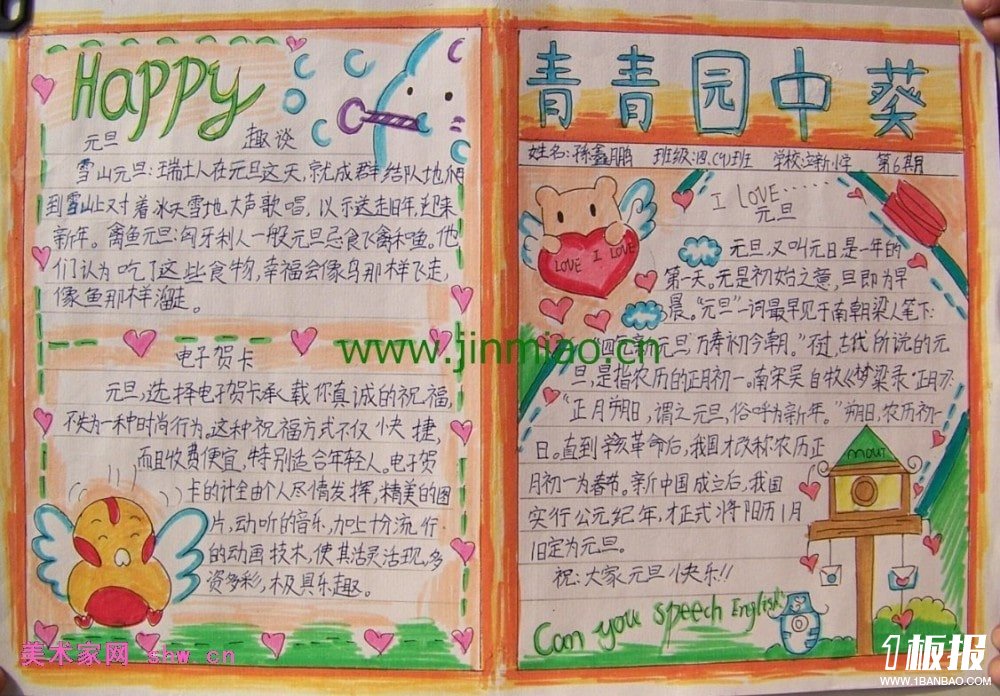 Happy
元旦 趣谈
雪山元旦：瑞士人在元旦这天，就成群结队地们
到雪山上对着冰天雪地大声歌唱，以示送走旧年，迎来
新年。禽鱼元旦：匈牙利人一般元旦忌食飞禽和鱼。他
们认为吃了这些食物，幸福会像鸟那样飞走，
像鱼那样溜走。
电子贺卡
元旦，选择电子贺卡承载你真诚的祝福，
不失为一种时尚行为。这种祝福方式不仅快捷，
而且收费便宜，特别适合年轻人。电子贺
卡的计全由个人尽情发挥，精美的图
片，动听的音乐，加上十分流行
的动画技术，使其活灵活现，多
资多彩，极具乐趣。
青青园中葵
姓名：孙鑫鹏 班级：四、(4)班 学校：立新小学 第6期
I LOVE......
元旦
LOVE I LOVE
元旦，又叫元日是一年的
第一天。元是初始之意，旦即为早
晨。"元旦"一词最早见于南朝梁人笔下：
"四气新元旦，万寿初今朝。"不过，古代所说的元
旦，是指农历的正月初一。南宋吴自牧《梦梁录·正月》：
"正月朔日，谓之元旦，俗呼为新年。"朔日，农历初一
日。直到辛亥革命后，我国才改称农历正
月初一为春节。新中国成立后，我国
实行公元纪年，才正式将阳历1月
1日定为元旦。
祝：大家元旦快乐!!
Can you speech English
www.jinmiao.cn
美术家网 shw.cn
1板报
WWW.1BANBAO.COM